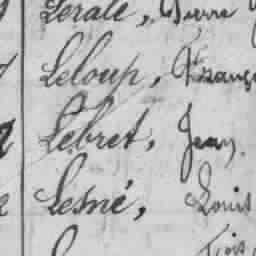 Lerale, Pierre
Leloup, Franç
Lebret, Jean
Lesné, Louis